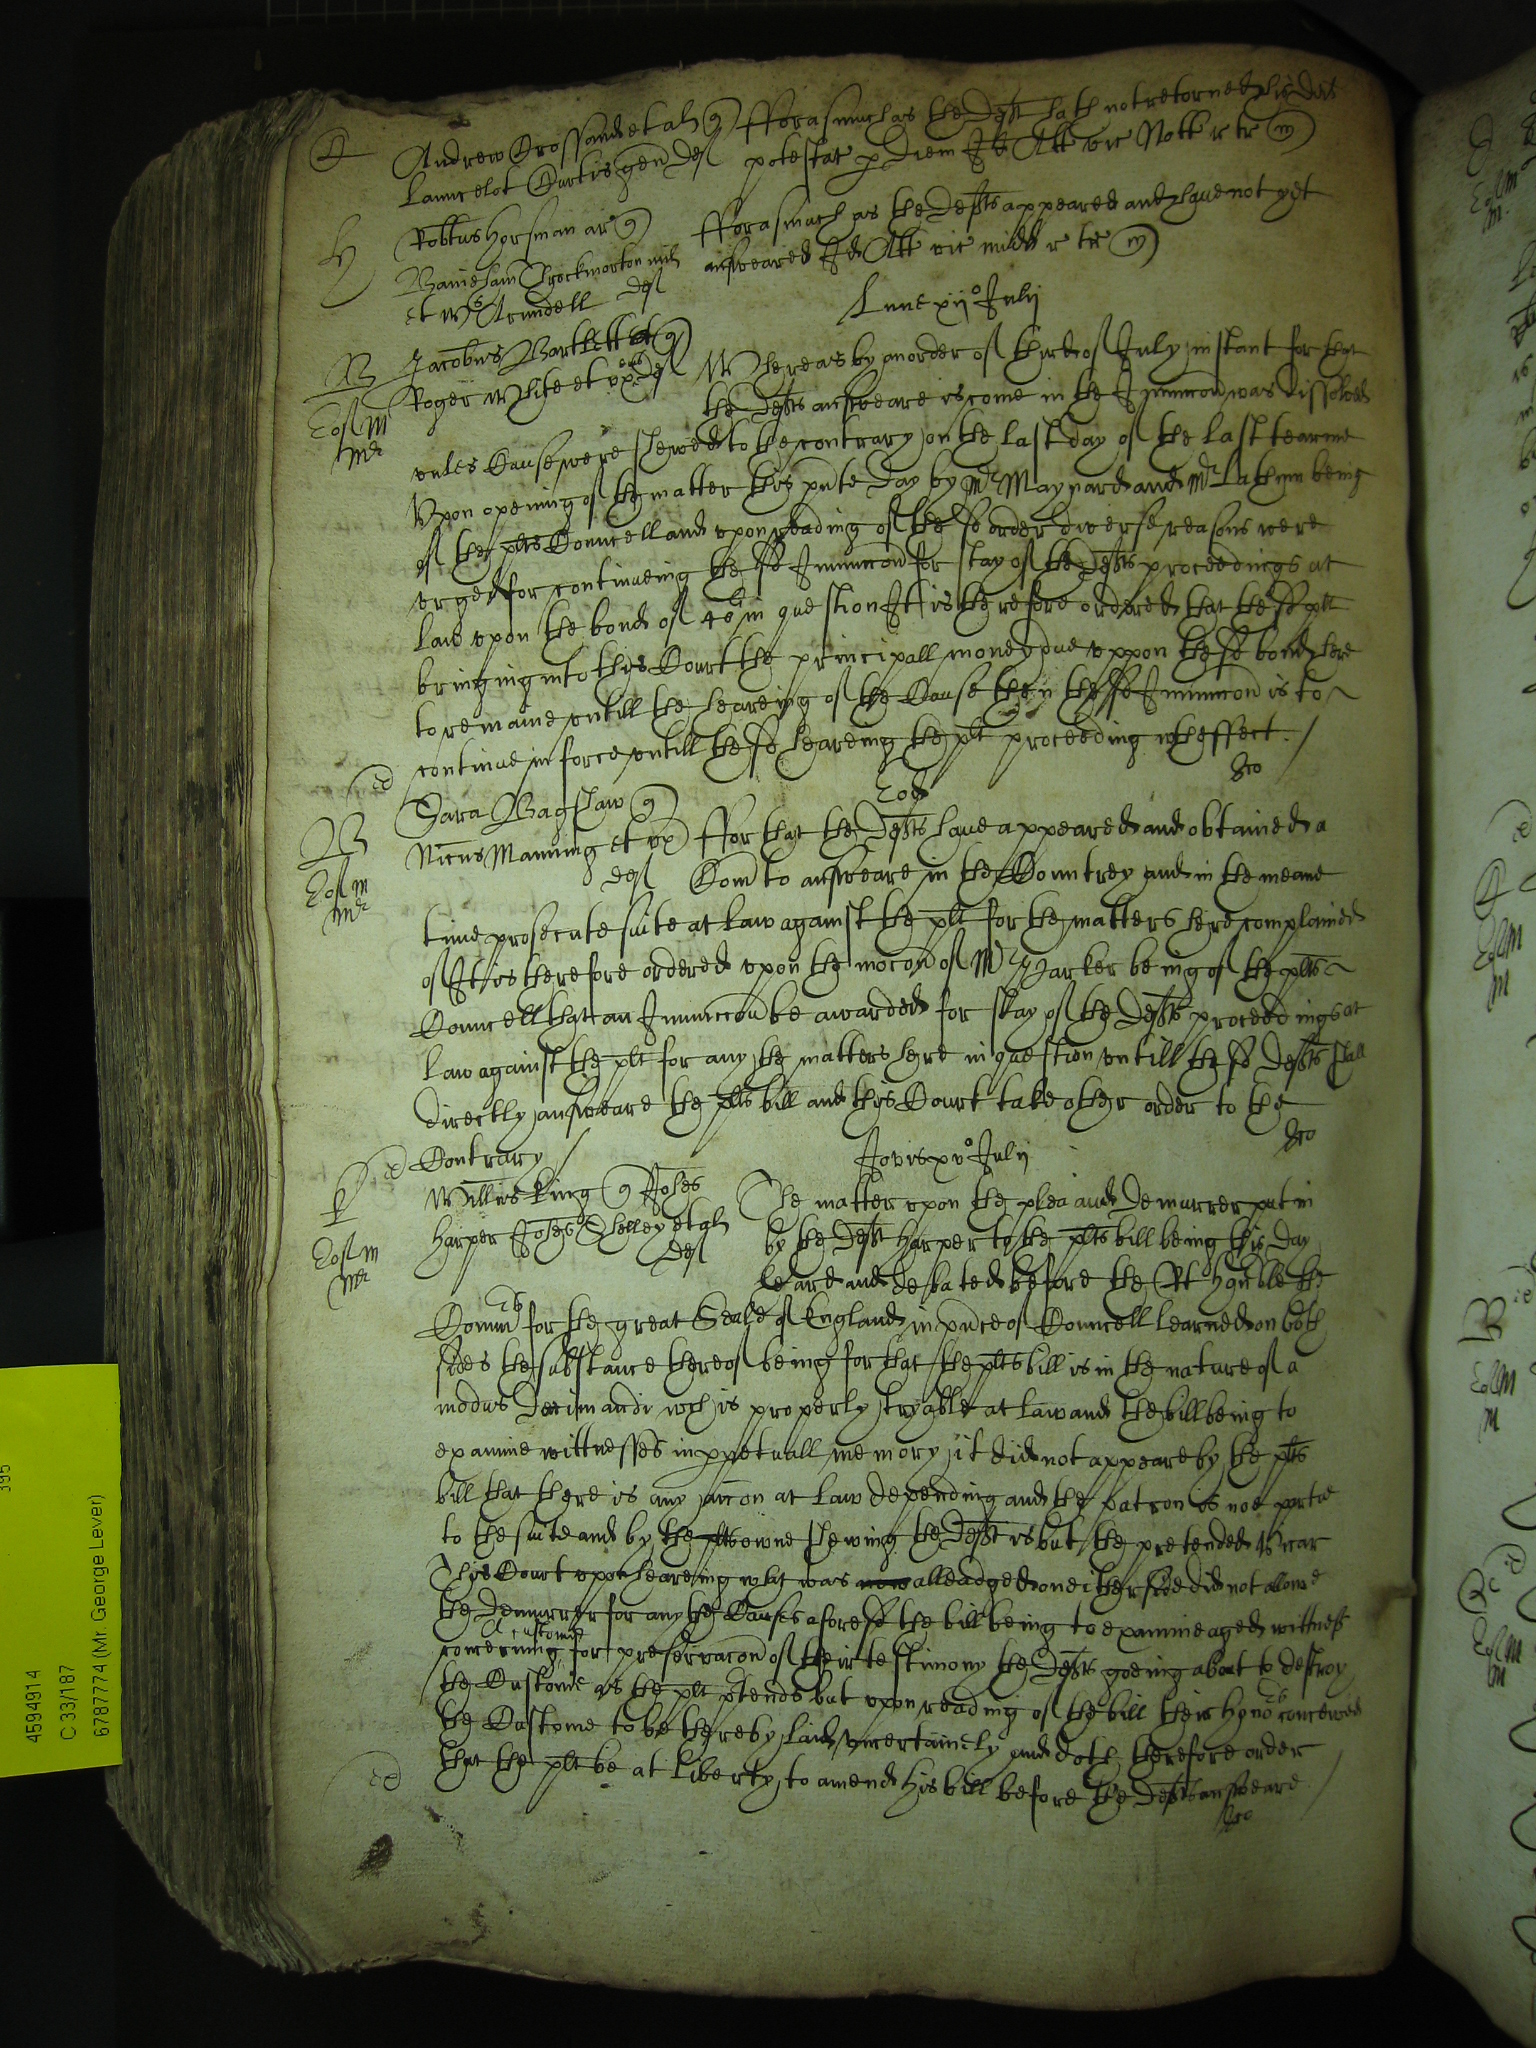 C Andrew Crossand et al q fforasmuch as the Deft hath not retorned his ded
Launcelot Curtis gen Def potestat p diem Id Att vic Nott r tr m
H Robtus Horsman ar q fforasmuch as the Defts appeared and have not yet
Throckmorton mil answeared Id Att vic midd r tr m
et Arundell def
Lune xii° Julii
B Jacobus Bartlett q
Roger White et ux eius Def Whereas by an order of third of July instant for that
the Defts answeare is come in the Iniunccon was dissolved
Eof m
mr
unles Cause were shewed to the contrary on the last day of the last tearme
Upon opening of the matter this pnte day by Mr Maynard and Mr Lathum being
of the plts Councell and upon reading of the sd order diverse reasons were
urged for continueing the sd Iniunccon for stay of the Defts proceedings at
law upon the bond of 40li in question It is therefore ordered that the sd plt
bringing into this Court the principall money due uppon the sd bond here
to remaine untill the heareing of the Cause then the sd Iniunccon is to
continue in force untill the sd heareing the plt proceeding wth effect /
ed
Sara Bagshaw q Eod
B Nicus Manning et ux ffor that the Defts have appeared and obtained a
def Com to answeare in the Countrey and in the meane
Eof m
mr
time prosecute suite at law against the plt for the matters here complained
of It is therefore ordered upon the mocon of Mr Parker being of the plts
Councell that an Iniunccon be awarded for stay of the Defts proceedings at
law against the plt for any the matters here in question untill the sd Defts shall
directly answeare the plts bill and this Court take other order to the
ed Contrary / Jovis xv° Julii
K Willus King q Johes The matter upon the plea and Demurrer put in
Harper Johes Shelley et al by the Deft Harper to the plts bill being this day
def heard and debated before the Rt Honble the
Eof m
mr
Commrs for the great Seale of England in pnce of Councell learned on both
sides the substance thereof being for that the plts bill is in the nature of a
modus Decimandi wch is properly tryable at law and the bill being to
examine wittnesses in ppetuall memory it did not appeare by the plts
bill that there is any accon at law depending and the patron is noe partie
to the suite and by the plts owne shewing the Deft is but the pretended Vicar
This Court upon heareing what was now alleadged on either side did not allowe
the Demurrer for any the Causes aforesd the bill being to examine aged wittness
concerning a custome for preservacon of their testimony the Defts goeing about to destroy
the Custome as the plt ptends but upon reading of the bill their Honors conceived
the Custome to be thereby laid uncertainely and doth therefore order
that the plt be at liberty to amend his bill before the Defts answeare /
ed
395
4594914
C 33/187
6787774 (Mr. George Lever)